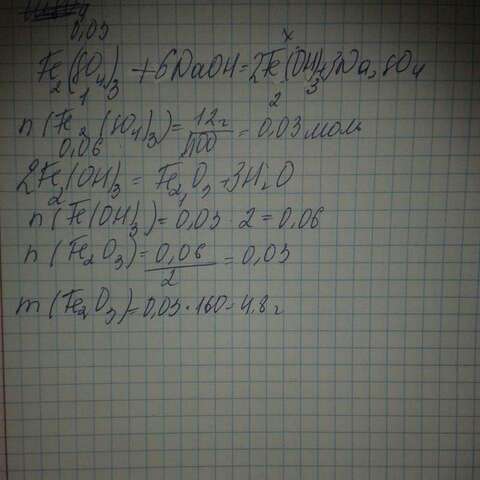 0,03 x
Fe2(SO4)3 + 6NaOH = 2Fe(OH)3 + 3Na2SO4
1 2
n(Fe2(SO4)3) = 12г/400 = 0,03 моль
0,06
2Fe(OH)3 = Fe2O3 + 3H2O
2 1
n(Fe(OH)3) = 0,03 · 2 = 0,06
n(Fe2O3) = 0,06/2 = 0,03
m(Fe2O3) = 0,03 · 160 = 4,8 г